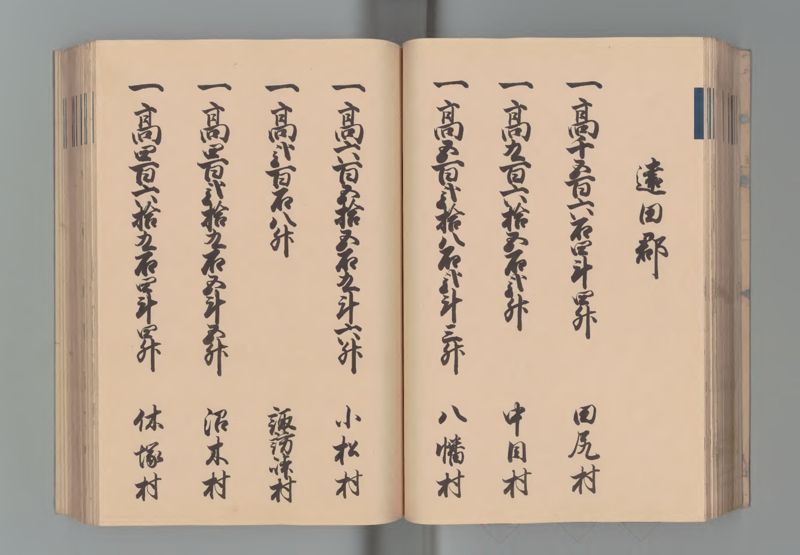 遠田郡
一高千五百六石四斗四升 田尻村
一高九百六拾五石弐升 中目村
一高五百弐拾八石弐斗三升 八幡村
一高六百五拾五石九斗六升 小松村
一高弐百石八升 諏訪峠村
一高四百弐拾九石五斗五升 沼木村
一高四百六拾九石四斗四升 休塚村